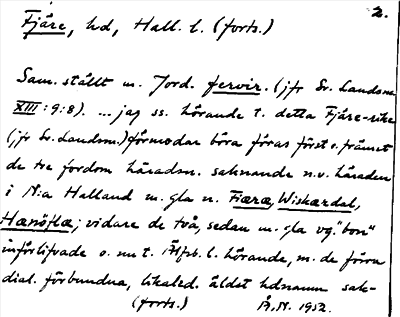 2.
Fjäre, hd, Hall. l. (forts.)
Sam. ställt m. Jord. fervir. (jfr Sv. Landsm
XIII: 9:8). ... jag ss. hörande t. detta Fjäre-rike
(jfr Sv. Landsm.) förmodar böra föras först o. främst
de tre fordom häradsn. saknande n.v. häraden
i N:a Halland m. gla n. Fiæræ, Wiskærdal,
Hænöflæ; vidare de två, sedan m. gla vg "bon"
införlifvade o. nu t. Älfsb. l. hörande, m. de förra
dial. förbundna, likaled. äldst hdnamn sak-
(forts.) Å.N. 1952.